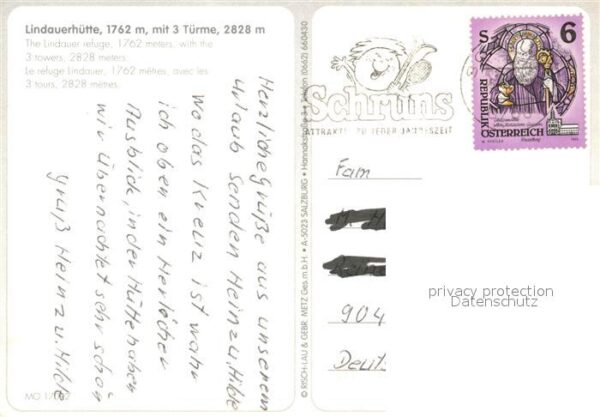 Lindauerhütte, 1762 m, mit 3 Türme, 2828 m
The Lindauer refuge, 1762 meters, with the
3 towers, 2828 meters.
Le réfuge Lindauer, 1762 mètres, avec les
3 tours, 2828 mètres.
Herzliche Grüße aus unserem
Urlaub senden Heinz u. Hilde
Wo das Kreuz ist war
ich oben ein Herlicher
Ausblick, in der Hütte haben
wir Übernachtet sehr schön
Gruß Heinz u. Hilde
MO
© RISCH-LAU & GEBR. METZ Ges.m.b.H. • A-5023 SALZBURG • Hannakstraße 3 • Telefon (0662) 660430
Schruns
ATTRAKTIV ZU JEDER JAHRESZEIT
S 6
REPUBLIK
ÖSTERREICH
Fam
904
Deut
privacy protection
Datenschutz